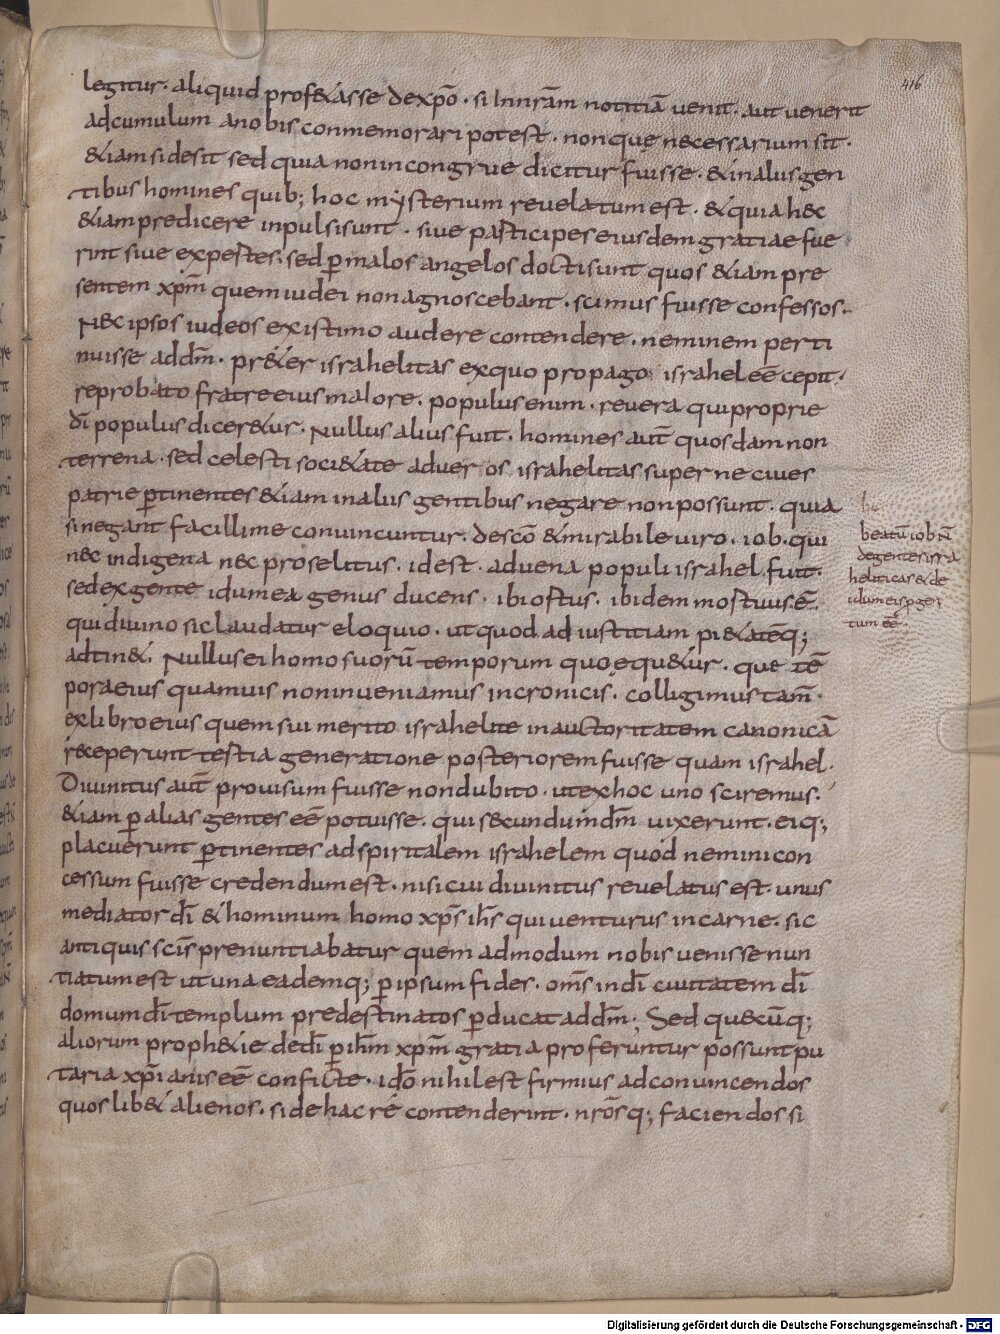 416
legitur· aliquid prof&asse dexp̄o· si Innr̄am notitiā uenit· aut uenerit
adcumulum anobis conmemorari potest· non que necessarium sit·
&iam si desit sed quia non incongrue dicitur fuisse· &inaliis gen
tibus homines quib; hoc mysterium reuelatum est· &quia h&c
&iam predicere inpulsi sunt· siue participes eiusdem gratiae fue
rint siue expertes· sed p̄ malos angelos docti sunt quos &iam pre
sentem xpm̄ quem iudei non agnoscebant· scimus fuisse confessos·
Nec ipsos iudeos existimo audere contendere· neminem perti
nuisse addm̄· pr&er israhelitas exquo propago israhel eē cepit·
reprobato fratre eius maiore· populus enim· reuera qui proprie
dī populus dicer&ur· Nullus alius fuit· homines aut̄ quosdam non
terrena· sed celesti soci&ate ad uer os israhelitas superne ciues
patrie p̄tinentes &iam inaliis gentibus negare non possunt· quia
si negant facillime conuincuntur· descō &mirabile uiro· iob· qui
nec indigena nec proselitus· idest· aduena populi israhel fuit·
sed exgente idumea genus ducens· ibi ortus· ibidem mortuus ē·
qui diuino sic laudatur eloquio· ut quod ad iustitiam pi&atēq;
adtin&· Nullus ei homo suorū temporum quoequ&ur· que tē
pora eius quamuis non inueniamus incronicis· colligimus tam̄·
exlibro eius quem sui merito israhelite in auctoritatem canonicā
receperunt tertia generatione posteriorem fuisse quam israhel·
Diuinitus aut̄ prouisum fuisse non dubito· ut exhoc uno sciremus·
&iam p̄ alias gentes eē potuisse· qui secundum dm̄ uixerunt· eiq;
placuerunt p̄tinentes ad spiritalem israhelem quod nemini con
cessum fuisse credendum est· nisi cui diuinitus reuelatus est· unus
mediator dī & hominum homo xp̄s ih̄s qui uenturus in carne· sic
antiquis scīs prenuntiabatur quem admodum nobis uenisse nun
tiatum est ut una eademq; p̄ ipsum fides· om̄s in dī ciuitatem dī
domum dī templum predestinatos p̄ducat addm̄; Sed quecūq;
aliorum proph&ie dedī p̄ ihm̄ xpm̄ gratia proferuntur possunt pu
tari a xp̄ianis eē conficte· idō nihil est firmius ad conuincendos
quos lib& alienos· si de hac re contenderint· nrōsq; faciendos si
beatū iob n̄
degente isra
helitica sed e
idumeis p gen
tum eē·
Digitalisierung gefördert durch die Deutsche Forschungsgemeinschaft - DFG